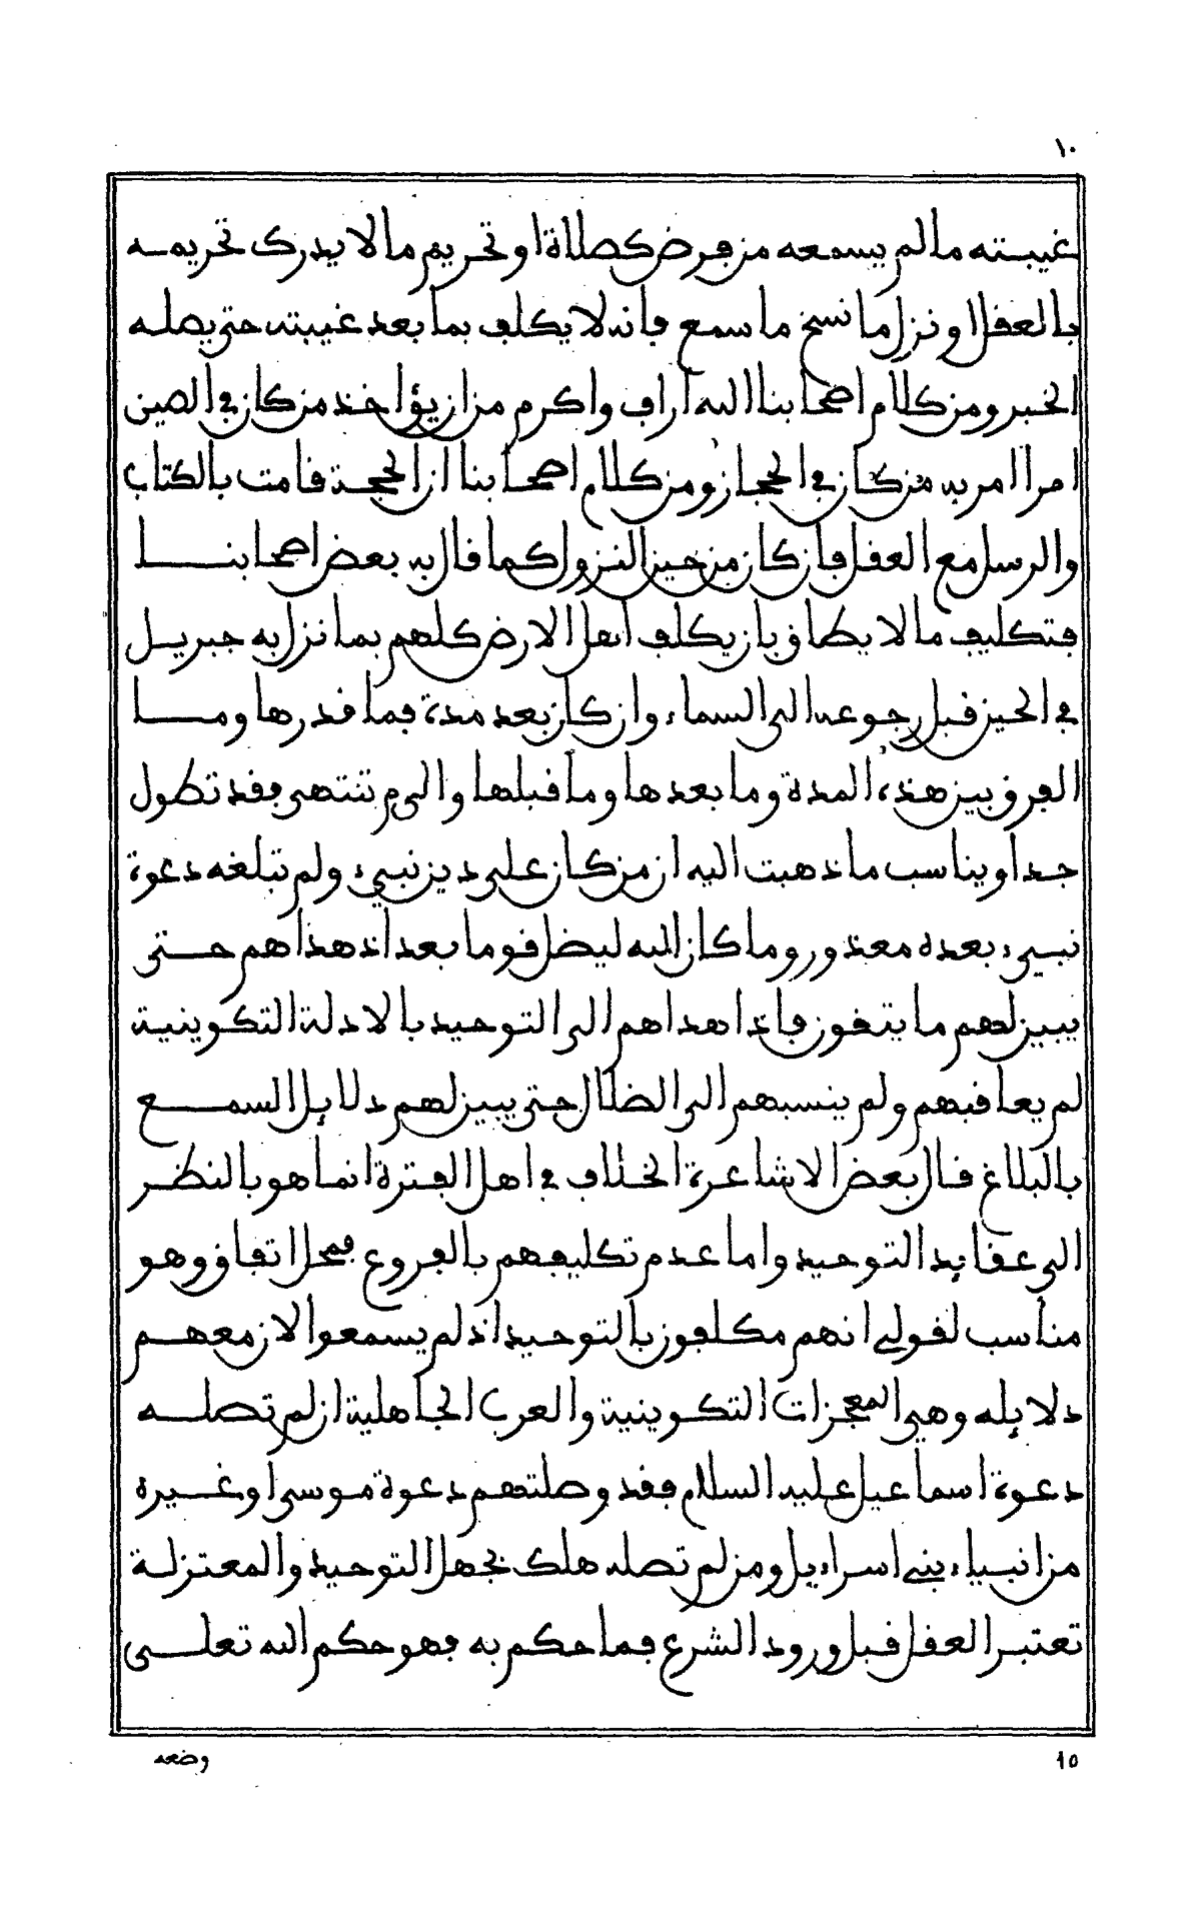 ١٠
غيبته ما لم يسمعه من فرض كصلاة او تحريم ما لا يدرك تحريمه
بالعقل او نزل ما نسخ ما سمع فانه لا يكلف بما بعد غيبته حتى يصله
الخبر ومن كلام اصحابنا الله اراف واكرم من ان يؤاخذ من كان في الصين
امرا امر به من كان في الحجاز ومن كلام اصحابنا ان الحجة قامت بالكتاب
والرسل مع العقل فان كان من حين النزول كما قال به بعض اصحابنا
فتكليف ما لا يطاق بان يكلف اهل الارض كلهم بما نزل به جبريل
في الحين قبل رجوعه الى السماء وان كان بعد مدة فما قدرها وما
الفرق بين هذه المدة وما بعدها وما قبلها والى م تنتهى فقد تطول
جدا ويناسب ما ذهبت اليه ان من كان على دين نبيء ولم تبلغه دعوة
نبيء بعده معذور وما كان الله ليضل قوما بعد اذ هذاهم حتى
يبين لهم ما يتقون فاذا هداهم الى التوحيد بالادلة التكوينية
لم يعاقبهم ولم ينسبهم الى الضلال حتى يبين لهم دلايل السمع
بالبلاغ قال بعض الاشاعرة الخلاف في اهل الفترة انما هو بالنظر
الى عقايد التوحيد واما عدم تكليفهم بالفروع فمحل اتفاق وهو
مناسب لقولي انهم مكلفون بالتوحيد اذ لم يسمعوا لان معهم
دلايله وهي المعجزات التكوينية والعرب الجاهلية ان لم تصله
دعوة اسماعيل عليه السلام فقد وصلتهم دعوة موسى او غيره
من انبياء بني اسراءيل ومن لم تصله هلك بجهل التوحيد والمعتزلة
تعتبر العقل قبل ورود الشرع فما حكم به فهو حكم الله تعلى
وضعه
١٥